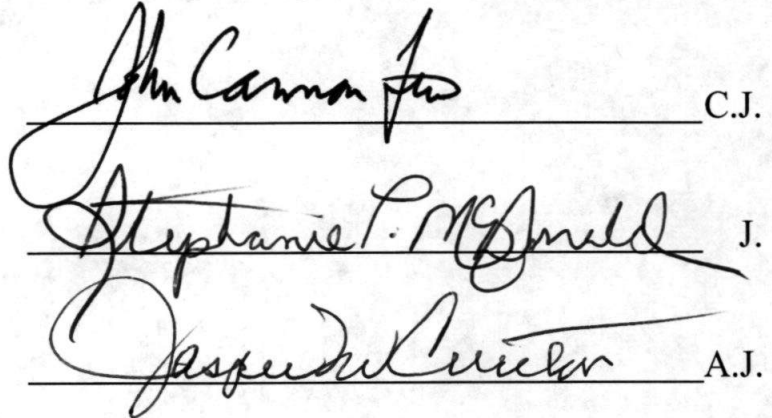 John Cannon Few C.J.
Stephanie P. McDonald J.
Jasper M. Cureton A.J.